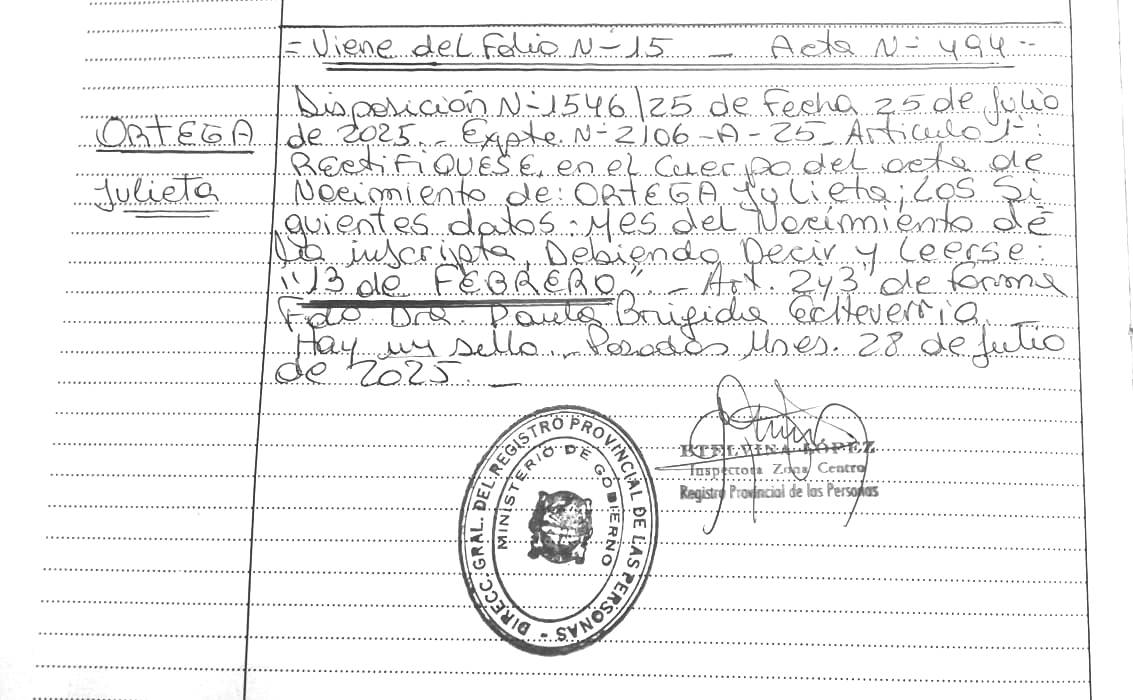 = Viene del Folio N- 15 _ Acta N- 494 --
ORTEGA
Julieta
Disposición N- 1546/25 de Fecha 25 de Julio
de 2025._ Expte. N- 2106-A-25_ Artículo 1-:
RECtiFiQUESE, en el Cuerpo del acta de
Nacimiento de: ORTEGA Julieta; Los Si
guientes datos: Mes del Nacimiento de
La inscripta, Debiendo Decir y Leerse:
"13 de FEBRERO"._ Art. 2y3 de forma
Fdo Dra. Paula Brigida Echeverria
Hay un sello_ Posadas Mnes. 28 de Julio
de 2025._
ETELVINA LÓPEZ
Inspectora Zona Centro
Registro Provincial de las Personas
DIRECC. GRAL. DEL REGISTRO PROVINCIAL DE LAS PERSONAS -
MINISTERIO DE GOBIERNO